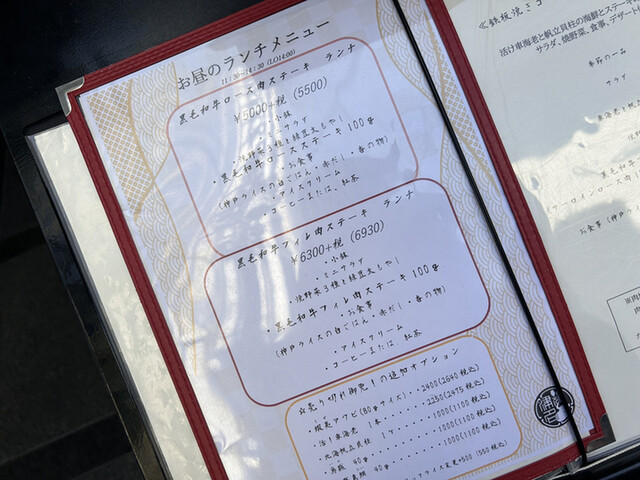 お昼のランチメニュー
11:30~14:30 (LO14:00)
黒毛和牛ロース肉ステーキ ランチ
¥5000+税 (5500)
・小鉢
・ミニサラダ
・焼野菜3種と緑豆太もやし
・黒毛和牛ロースステーキ100g
・お食事
(神戸ライスの白ごはん・赤だし・香の物)
・アイスクリーム
・コーヒーまたは、紅茶
黒毛和牛フィレ肉ステーキ ランチ
¥6300+税 (6930)
・小鉢
・ミニサラダ
・焼野菜3種と緑豆太もやし
・黒毛和牛フィレ肉ステーキ100g
・お食事
(神戸ライスの白ごはん・赤だし・香の物)
・アイスクリーム
・コーヒーまたは、紅茶
☆売り切れ御免!の追加オプション
・蝦夷アワビ(80gサイズ)・・2400(2640税込)
・活き車海老 1本・・・・2250(2475税込)
・北海帆立貝柱 1ケ・・・・1000(1100税込)
40g・・・・1000(1100税込)
40g・・・・1000(1100税込)
ライス変更+500(550税込)
≪鉄板焼き
活け車海老と帆立貝柱の海鮮とステーキ
サラダ、焼野菜、食事、デザート
季節の一品
サラダ
車海老
黒毛和
サーロインロース肉
お食事(神戸